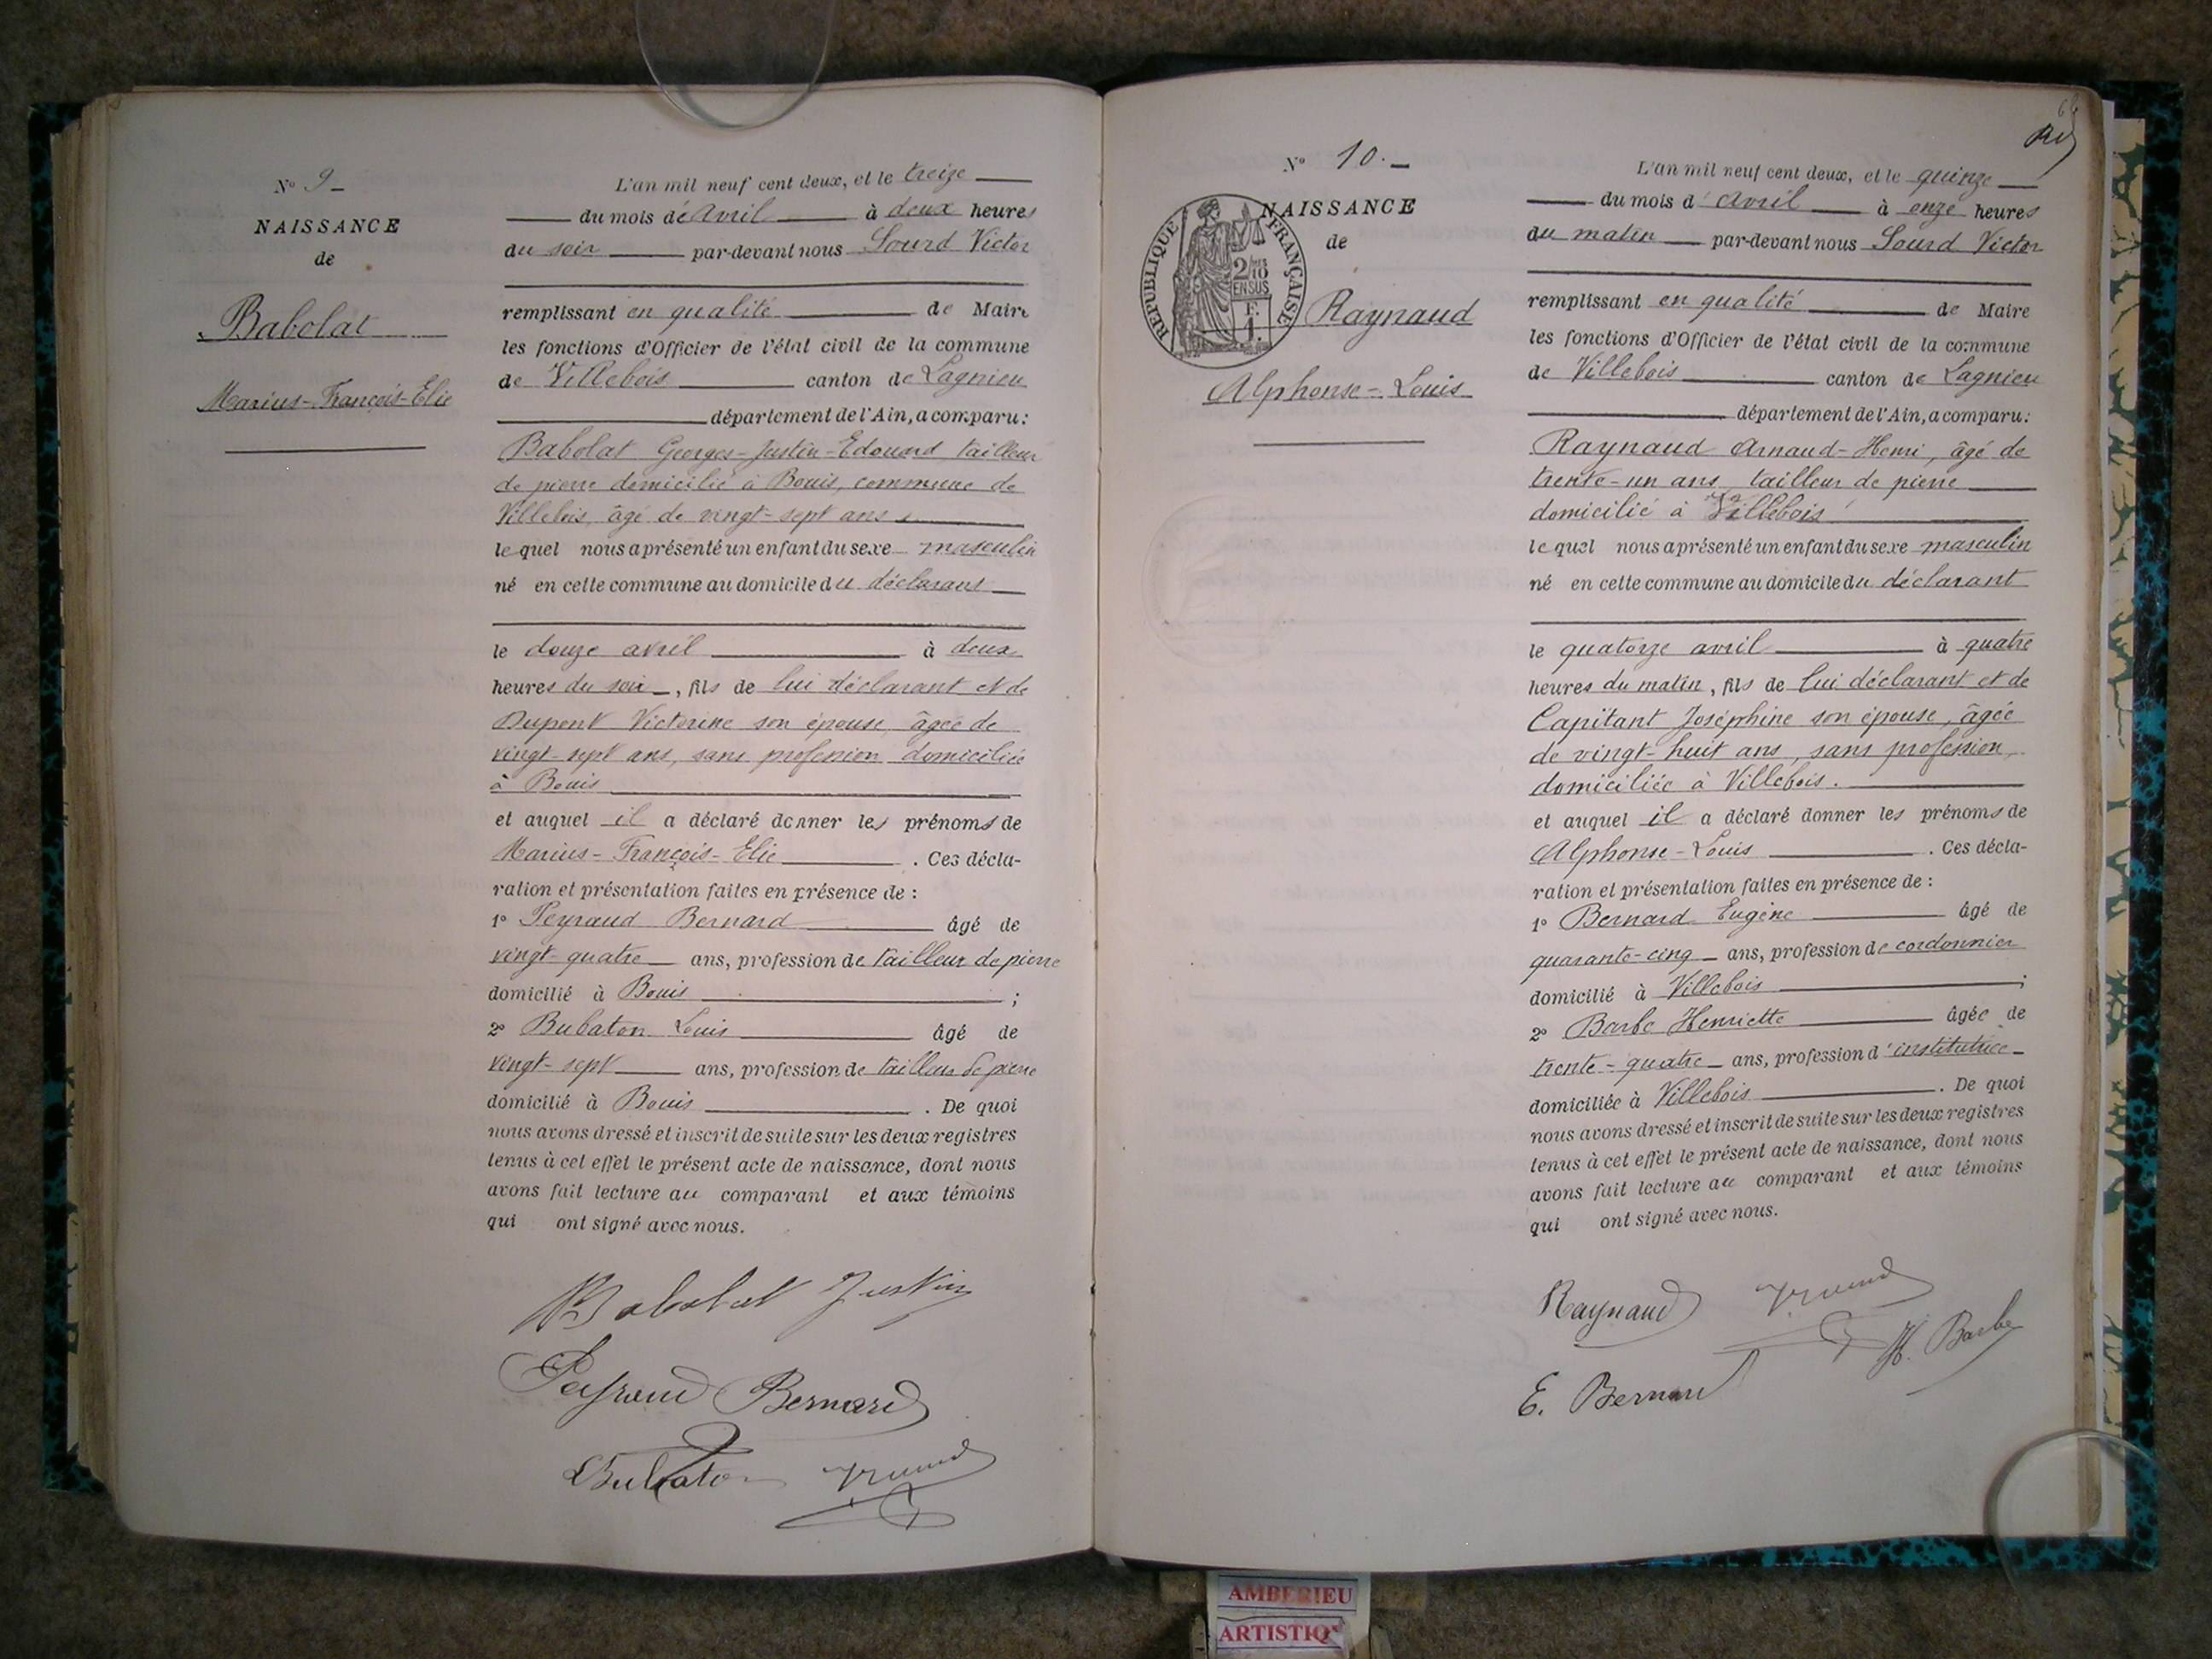 Nº 9
NAISSANCE
de
Babolat
Marius-François-Elie
L'an mil neuf cent deux, et le treize
du mois de avril à deux heures
du soir par-devant nous Sourd Victor
remplissant en qualité de Maire
les fonctions d'Officier de l'état civil de la commune
de Villebois canton de Lagnieu
département de l'Ain, a comparu:
Babolat Georges-Justin-Edouard tailleur
de pierre domicilié à Bouis, commune de
Villebois âgé de vingt-sept ans
lequel nous a présenté un enfant du sexe masculin
né en cette commune au domicile du déclarant
le douze avril à deux
heures du soir, fils de lui déclarant et de
Dupont Victorine son épouse, âgée de
vingt-sept ans, sans profession domiciliée
à Bouis
et auquel il a déclaré donner les prénoms de
Marius-François-Elie. Ces décla-
ration et présentation faites en présence de :
1º Peyraud Bernard âgé de
vingt-quatre ans, profession de tailleur de pierre
domicilié à Bouis ;
2º Bubaton Louis âgé de
vingt-sept ans, profession de tailleur de pierre
domicilié à Bouis. De quoi
nous avons dressé et inscrit de suite sur les deux registres
tenus à cet effet le présent acte de naissance, dont nous
avons fait lecture au comparant et aux témoins
qui ont signé avec nous.
Babolat Justin
Peyraud Bernard
Bubaton
Nº 10.
NAISSANCE
de
REPUBLIQUE FRANÇAISE
2/10
EN SUS
F.
1.
Raynaud
Alphonse-Louis
L'an mil neuf cent deux, et le quinze
du mois d'avril à onze heures
du matin par-devant nous Sourd Victor
remplissant en qualité de Maire
les fonctions d'Officier de l'état civil de la commune
de Villebois canton de Lagnieu
département de l'Ain, a comparu:
Raynaud Arnaud-Henri, âgé de
trente-un ans, tailleur de pierre
domicilié à Villebois
lequel nous a présenté un enfant du sexe masculin
né en cette commune au domicile du déclarant
le quatorze avril à quatre
heures du matin, fils de lui déclarant et de
Capitant Joséphine son épouse, âgée
de vingt-huit ans, sans profession,
domiciliée à Villebois.
et auquel il a déclaré donner les prénoms de
Alphonse-Louis. Ces décla-
ration et présentation faites en présence de :
1º Bernard Eugène âgé de
quarante-cinq ans, profession de cordonnier
domicilié à Villebois ;
2º Barbe Henriette âgée de
trente-quatre ans, profession d'institutrice
domiciliée à Villebois. De quoi
nous avons dressé et inscrit de suite sur les deux registres
tenus à cet effet le présent acte de naissance, dont nous
avons fait lecture au comparant et aux témoins
qui ont signé avec nous.
Raynaud
H. Barbe
E. Bernard
AMBERIEU
ARTISTIQ